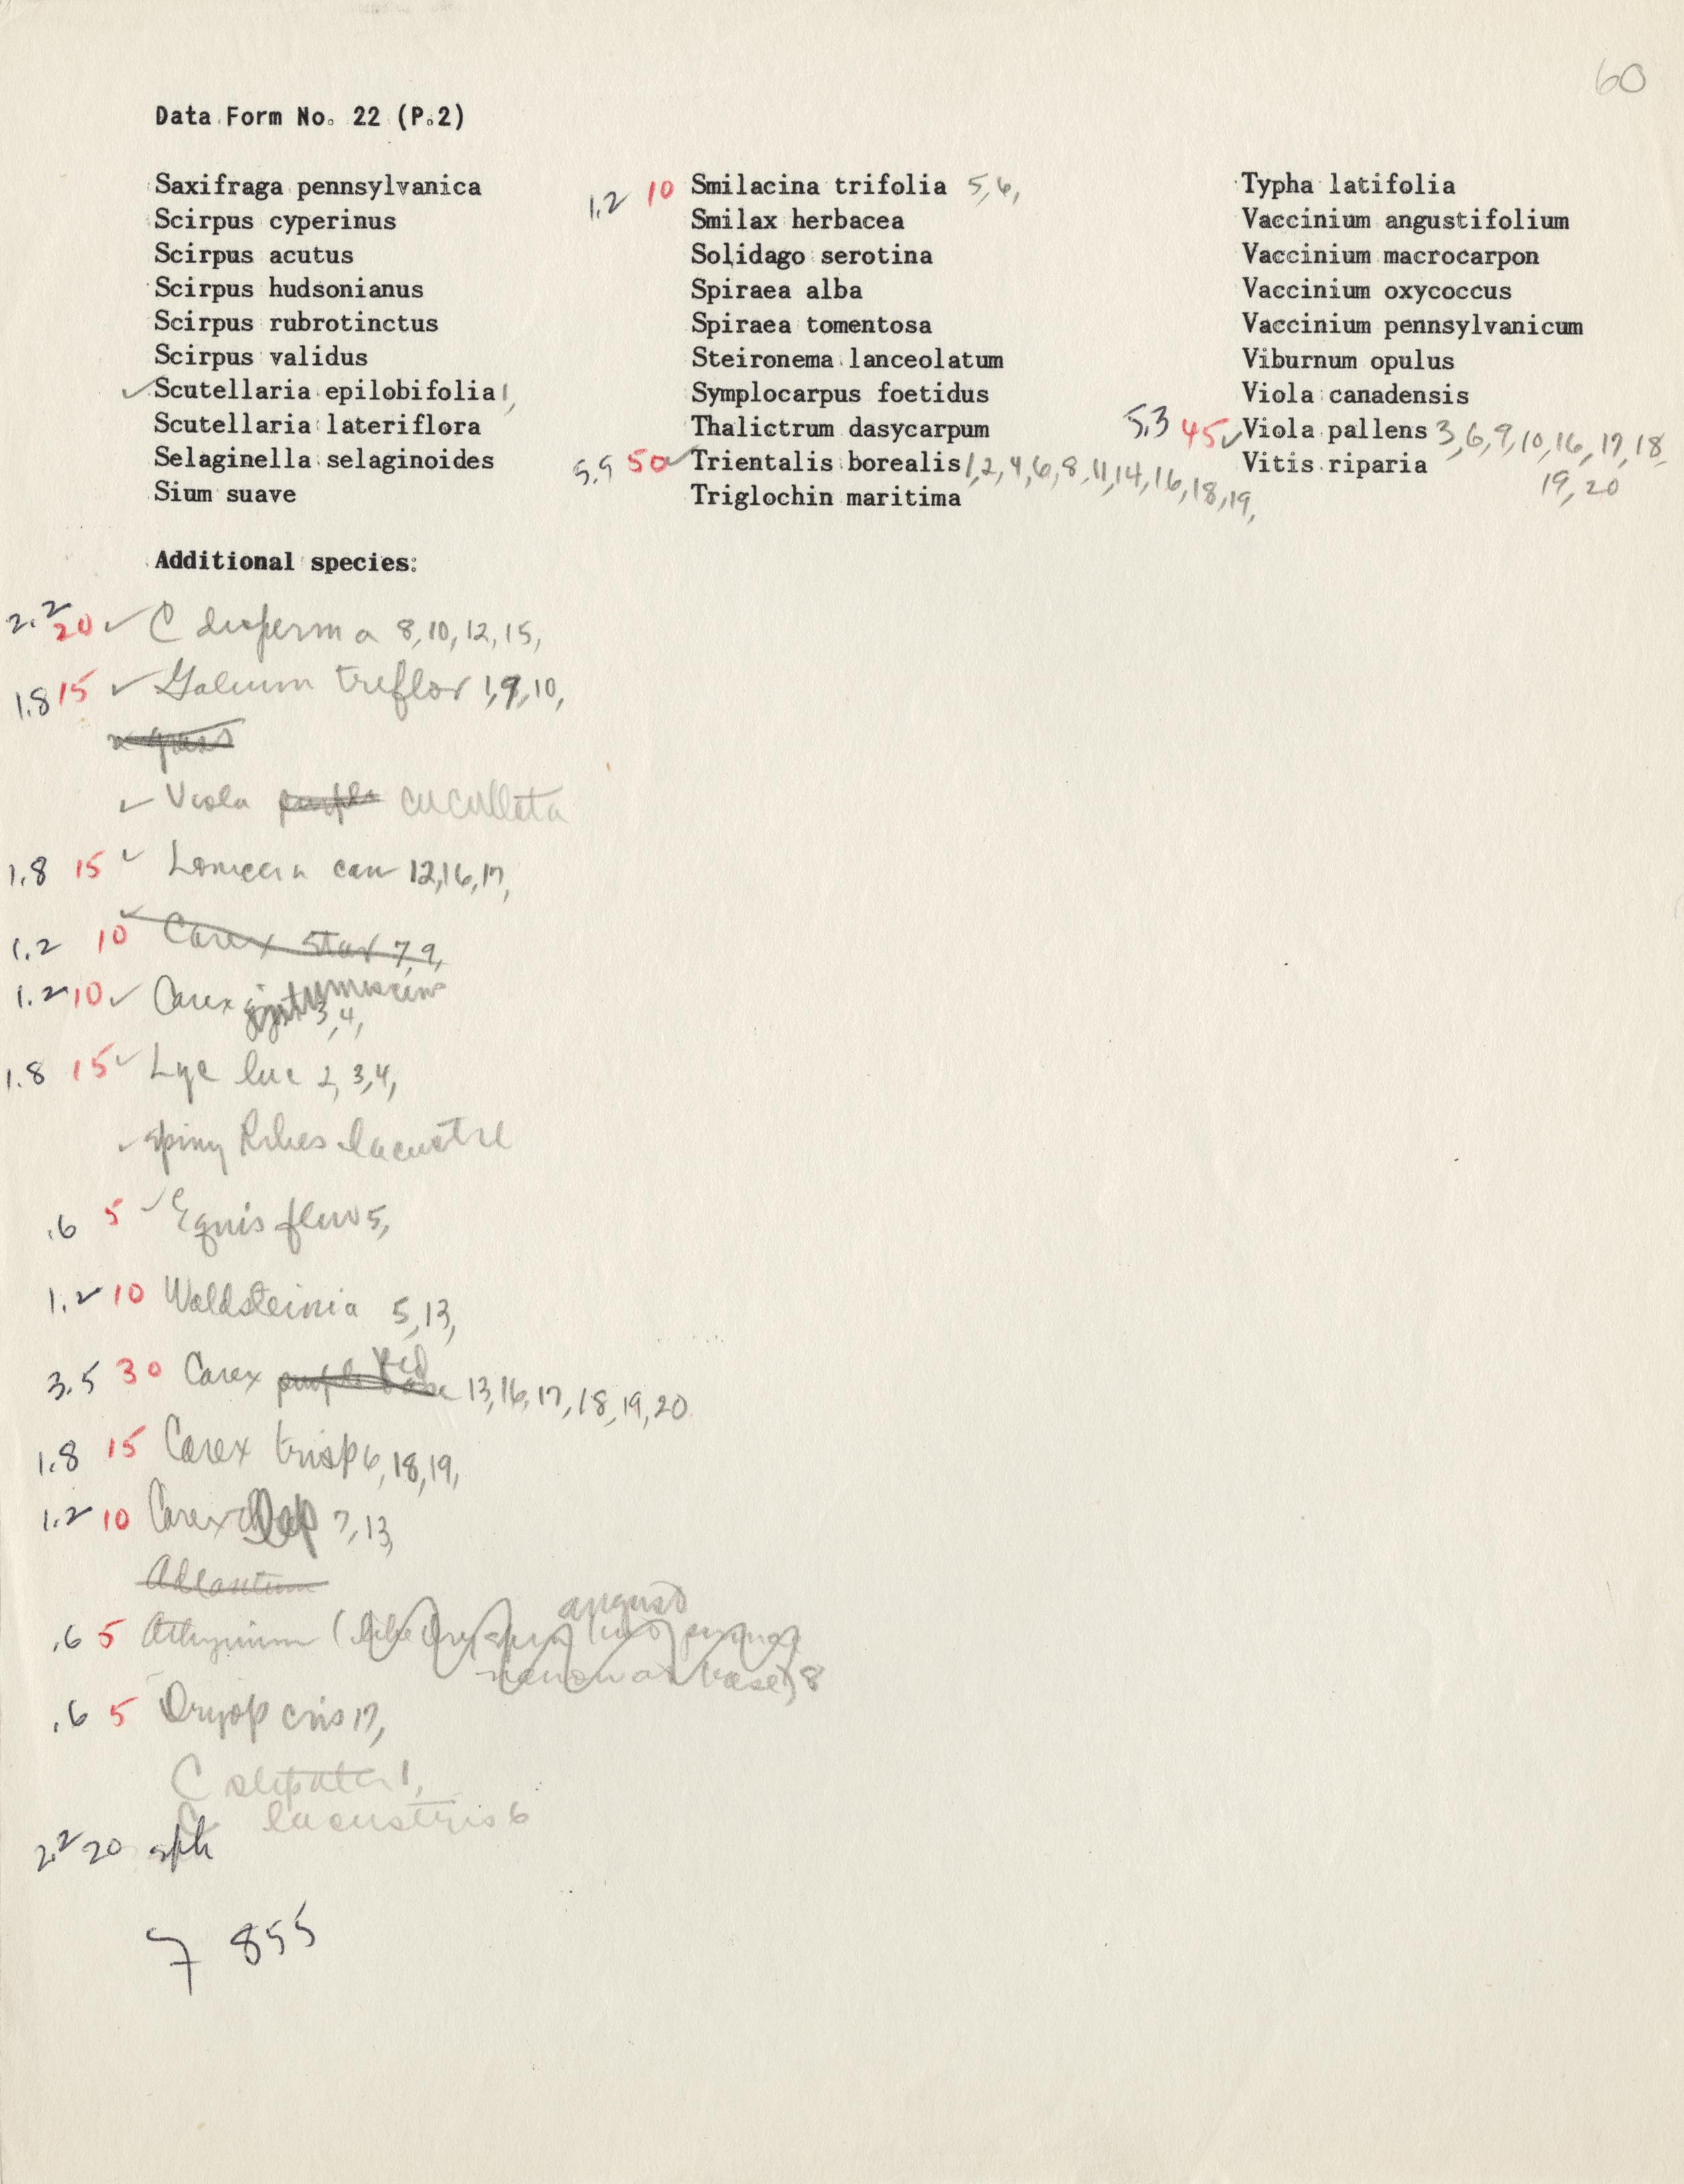 60
Data Form No. 22 (P.2)
Saxifraga pennsylvanica
Scirpus cyperinus
Scirpus acutus
Scirpus hudsonianus
Scirpus rubrotinctus
Scirpus validus
✓ Scutellaria epilobifolia 1,
Scutellaria lateriflora
Selaginella selaginoides
Sium suave
1.2 10 Smilacina trifolia 5,6,
Smilax herbacea
Solidago serotina
Spiraea alba
Spiraea tomentosa
Steironema lanceolatum
Symplocarpus foetidus
Thalictrum dasycarpum
5.9 50 ✓ Trientalis borealis 1,2,4,6,8,11,14,16,18,19,
Triglochin maritima
Typha latifolia
Vaccinium angustifolium
Vaccinium macrocarpon
Vaccinium oxycoccus
Vaccinium pennsylvanicum
Viburnum opulus
Viola canadensis
5.3 45 ✓ Viola pallens 3,6,9,10,16,17,18,
19,20
Vitis riparia
Additional species:
2.2 20 ✓ C disperma 8,10,12,15,
1.8 15 ✓ Galium triflor 1,9,10,
✓ Viola purple cucullata
1.8 15 ✓ Lonicera can 12,16,17,
1.2 10 ✓ Carex star 7,9,
1.2 10 ✓ Carex 3,4,
1.8 15 ✓ Lyc luc 2,3,4,
✓ spiny Ribes lacustre
.6 5 ✓ Equis fluv 5,
1.2 10 Waldsteinia 5,13,
3.5 30 Carex purple base ped 13,16,17,18,19,20
1.8 15 Carex trisp 6,18,19,
1.2 10 Carex 7,13,
Adiantum
.6 5 Athyrium (like angust
base) 8
.6 5 Dryop cris 17,
C stipata 1,
C lacustris 6
2.2 20 sph
7 855